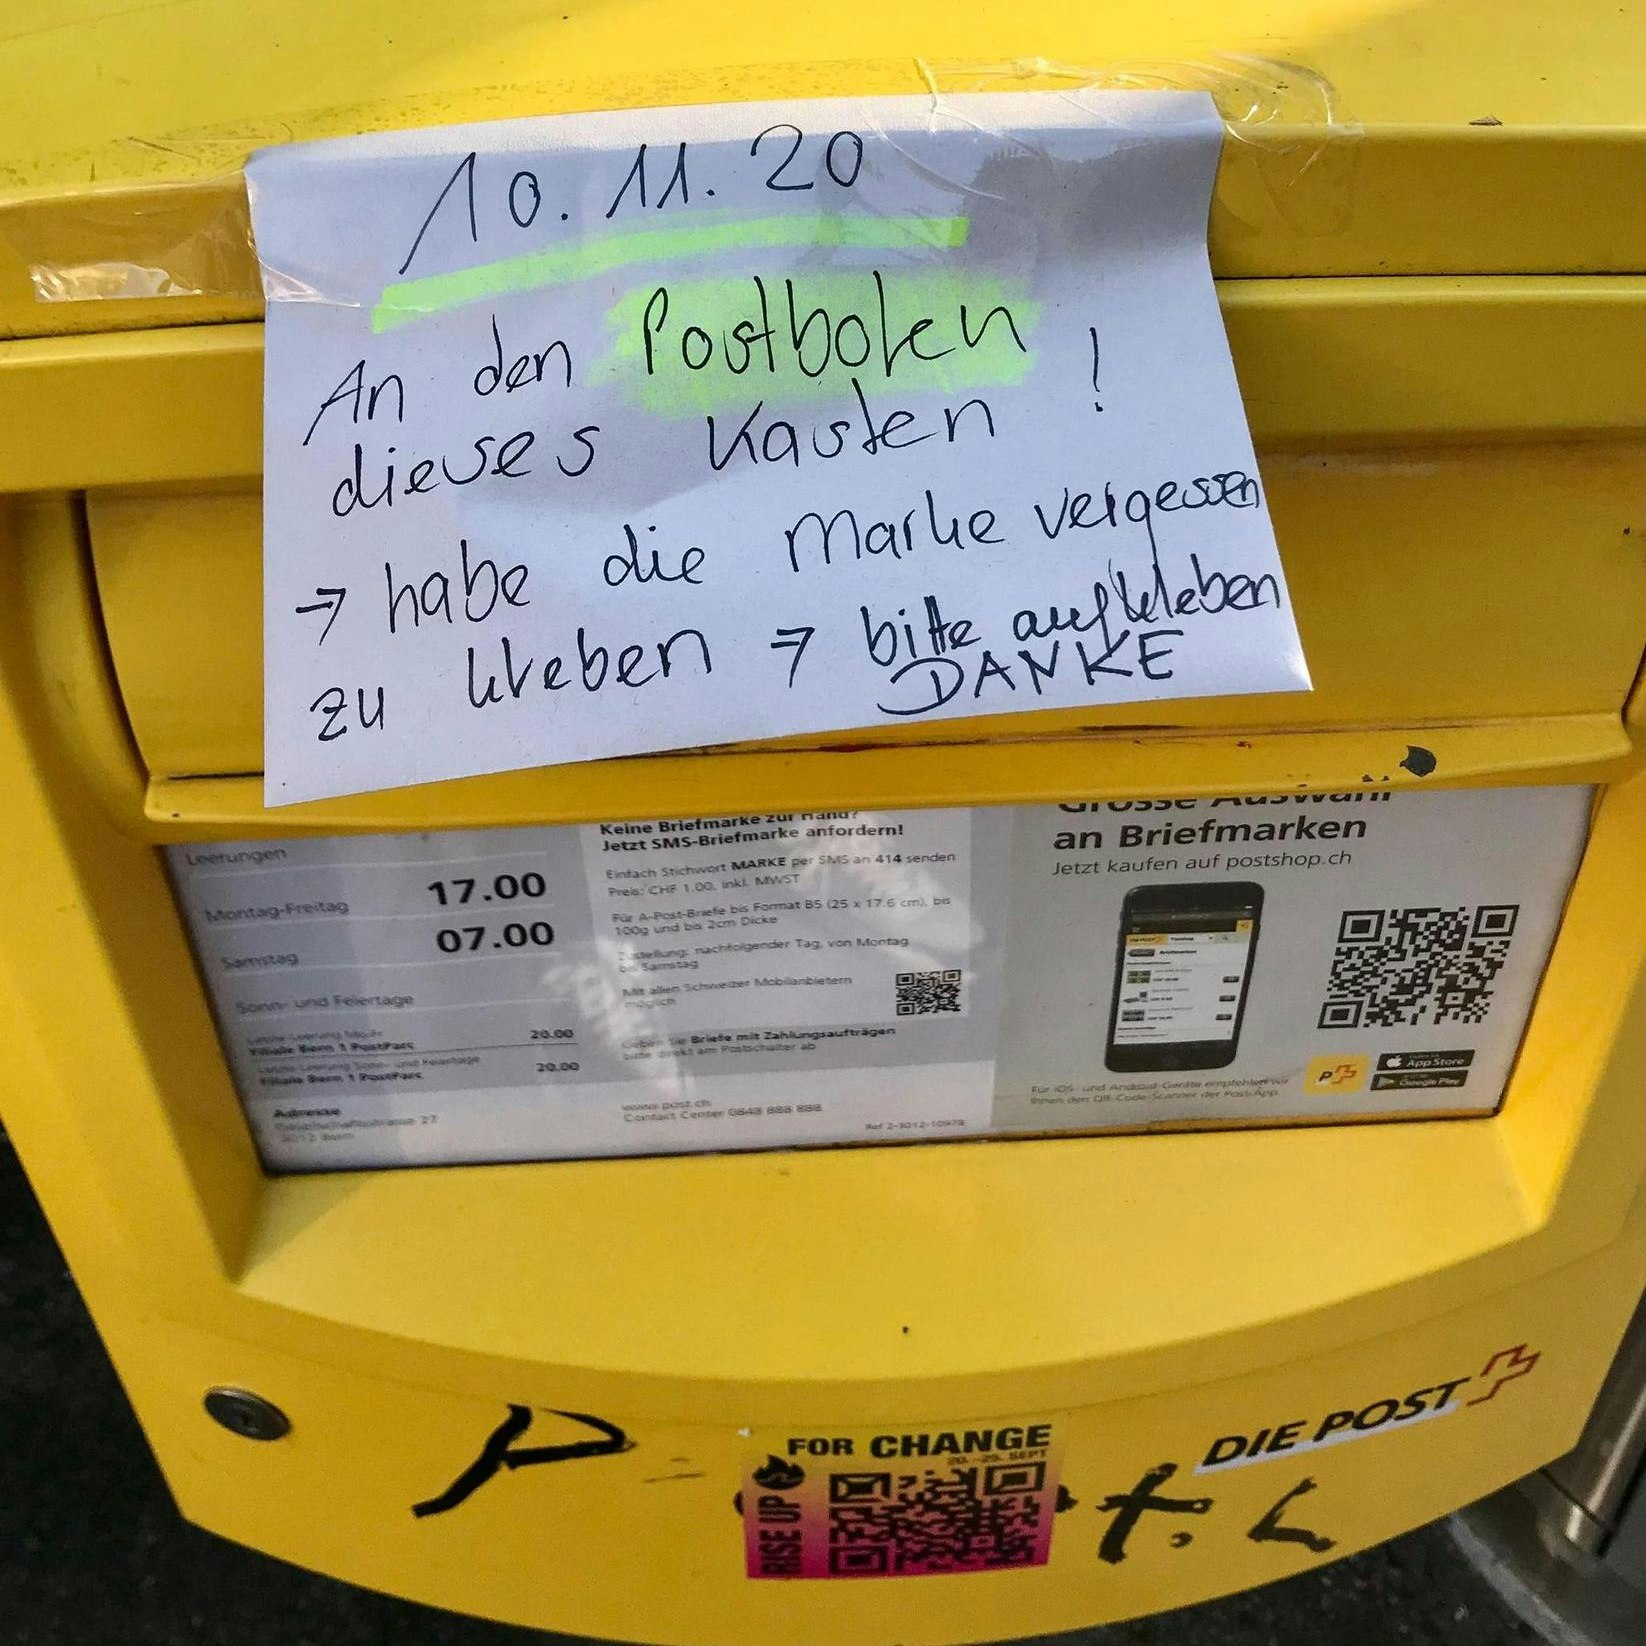 10.11.20
An den Postboten
dieses Kasten !
→ habe die Marke vergessen
zu kleben → bitte aufkleben
DANKE
Leerungen
Montag-Freitag 17.00
Samstag 07.00
Sonn- und Feiertage
20.00
Filiale Bern 1 PostParc
20.00
Filiale Bern 1 PostParc
Adresse
27
3012 Bern
Keine Briefmarke zur Hand?
Jetzt SMS-Briefmarke anfordern!
Einfach Stichwort MARKE per SMS an 414 senden
Preis: CHF 1.00, inkl. MWST
Für A-Post-Briefe bis Format B5 (25 x 17.6 cm), bis
100g und bis 2cm Dicke
Zustellung: nachfolgender Tag, von Montag
bis Samstag
Mit allen Schweizer Mobilanbietern
möglich
Geben Sie Briefe mit Zahlungsaufträgen
bitte direkt am Postschalter ab
www.post.ch
Contact Center 0848 888 888
Ref 2-3012-10978
Grosse Auswahl
an Briefmarken
Jetzt kaufen auf postshop.ch
P
App Store
Google Play
Für iOS- und Android-Geräte empfehlen wir
Ihnen den QR-Code-Scanner der Post-App.
DIE POST
FOR CHANGE
20.-25. SEPT
RISE UP